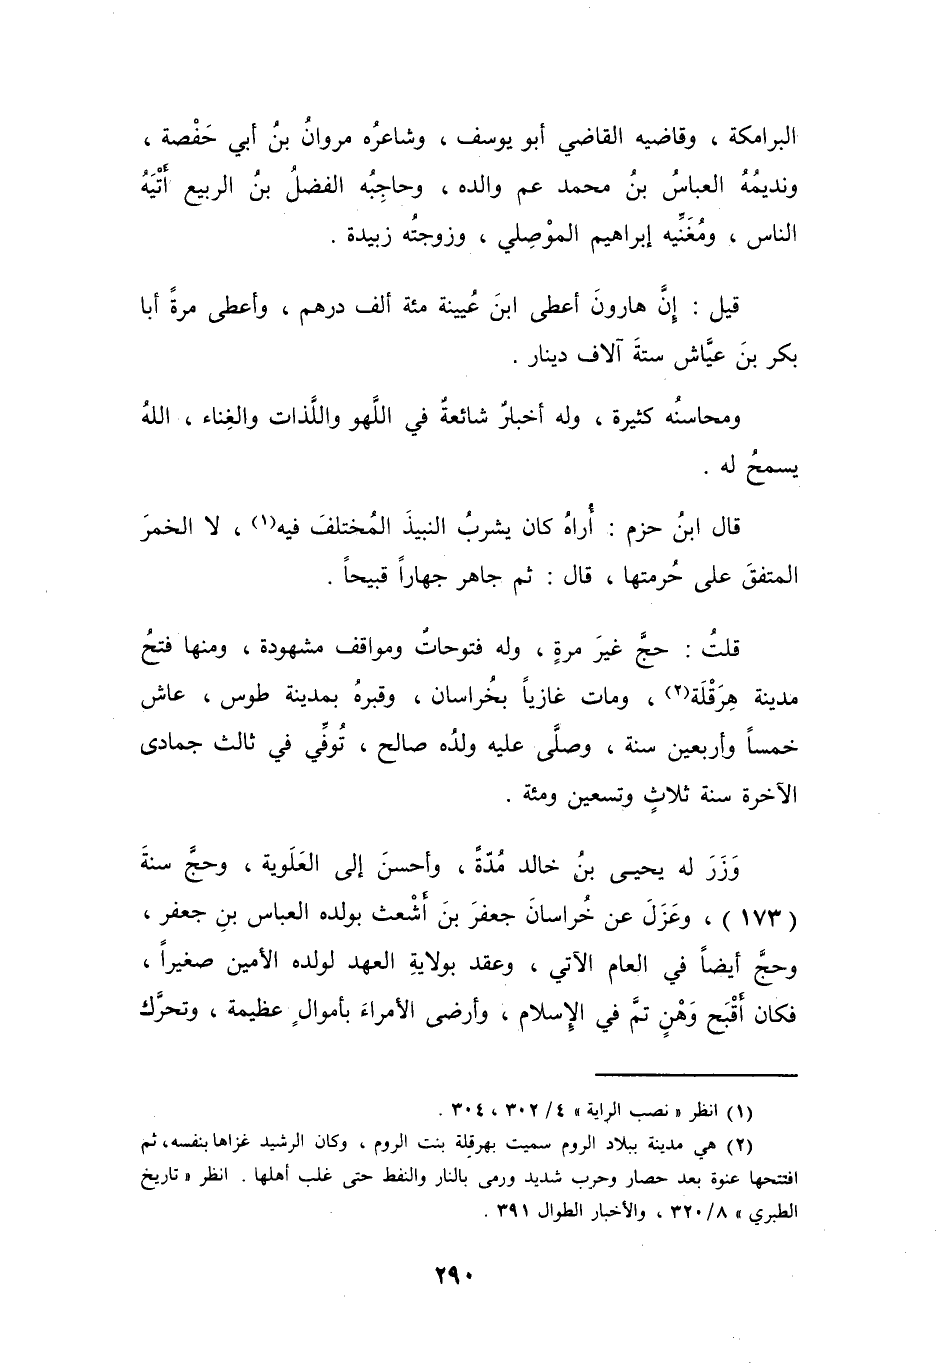 البرامكة ، وقاضيه القاضي أبو يوسف ، وشاعرُه مروانُ بنُ أبي حَفْصة ،
ونديمُهُ العباسُ بنُ محمد عم والده ، وحاجِبُه الفضلُ بنُ الربيع أَتْيَهُ
الناس ، ومُغَنِّيه إبراهيم الموْصِلي ، وزوجتُه زبيدة .
قيل : إنَّ هارونَ أعطى ابنَ عُيينة مئة ألف درهم ، وأعطى مرةً أبا
بكر بنَ عيَّاش ستةَ آلاف دينار .
ومحاسنُه كثيرة ، وله أخبارٌ شائعةٌ في اللَّهو واللَّذات والغِناء ، اللهُ
يسمحُ له .
قال ابنُ حزم : أُراهُ كان يشربُ النبيذَ المُختلفَ فيه(١) ، لا الخمرَ
المتفقَ على حُرمتها ، قال : ثم جاهر جهاراً قبيحاً .
قلتُ : حجَّ غيرَ مرةٍ ، وله فتوحاتٌ ومواقف مشهودة ، ومنها فتحُ
مدينة هِرَقْلَة(٢) ، ومات غازياً بخُراسان ، وقبرهُ بمدينة طوس ، عاش
خمساً وأربعين سنة ، وصلَّى عليه ولدُه صالح ، تُوفِّي في ثالث جمادى
الآخرة سنة ثلاثٍ وتسعين ومئة .
وَزَرَ له يحيى بنُ خالد مُدّةً ، وأحسنَ إلى العَلَوية ، وحجَّ سنةَ
( ١٧٣ ) ، وعَزَلَ عن خُراسانَ جعفرَ بنَ أَشْعث بولده العباس بنِ جعفر ،
وحجَّ أيضاً في العام الآتي ، وعقد بولايةِ العهد لولده الأمين صغيراً ،
فكان أَقْبَح وَهْنٍ تمَّ في الإِسلام ، وأرضى الأمراءَ بأموالٍ عظيمة ، وتحرَّك
(١) انظر « نصب الراية » ٤ / ٣٠٢ ، ٣٠٤ .
(٢) هي مدينة ببلاد الروم سميت بهرقلة بنت الروم ، وكان الرشيد غزاها بنفسه، ثم
افتتحها عنوة بعد حصار وحرب شديد ورمى بالنار والنفط حتى غلب أهلها . انظر « تاريخ
الطبري » ٨ / ٣٢٠ ، والأخبار الطوال ٣٩١ .
٢٩٠